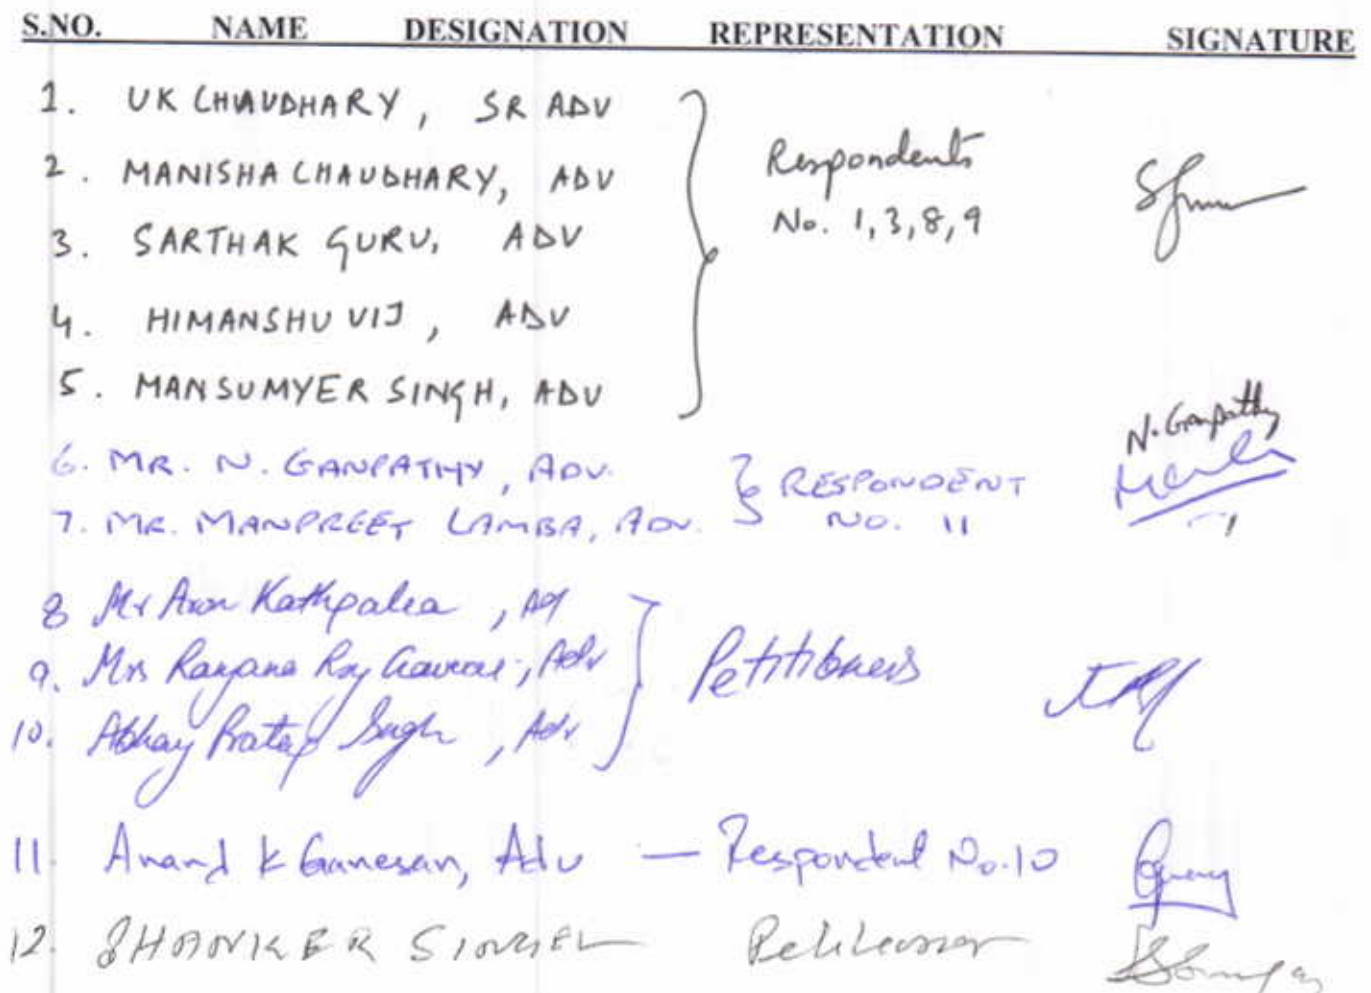 S.NO. NAME DESIGNATION REPRESENTATION SIGNATURE
1. UK CHAUDHARY, SR ADV
2. MANISHA CHAUDHARY, ADV
3. SARTHAK GURU, ADV
4. HIMANSHU VIJ, ADV
5. MANSUMYER SINGH, ADV
Respondents
No. 1,3,8,9
6. MR. N. GANPATHY, ADV.
7. MR. MANPREET LAMBA, ADV.
RESPONDENT
NO. 11
N. Ganpathy
8 Mr Arun Kathpalia, Adv
9. Mrs Ranjana Roy, Adv
10. Abhay Pratap Singh, Adv
Petitioners
11. Anand K Ganesan, Adv — Respondent No. 10
12. SHANKER Petitioner